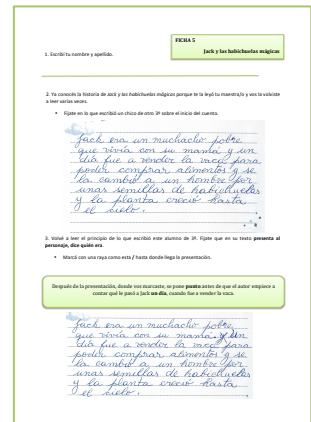 FICHA 5
Jack y las habichuelas mágicas
1. Escribí tu nombre y apellido.
2. Ya conocés la historia de Jack y las habichuelas mágicas porque te la leyó tu maestra/o y vos la volviste
a leer varias veces.
• Fijate en lo que escribió un chico de otro 3º sobre el inicio del cuento.
Jack era un muchacho pobre
que vivía con su mamá y un
día fue a vender la vaca para
poder comprar alimentos y se
la cambió a un hombre por
unas semillas de habichuelas
y la planta creció hasta
el cielo.
3. Volvé a leer el principio de lo que escribió este alumno de 3º. Fijate que en su texto presenta al
personaje, dice quién era.
• Marcá con una raya como esta / hasta donde llega la presentación.
Después de la presentación, donde vos marcaste, se pone punto antes de que el autor empiece a
contar qué le pasó a Jack un día, cuando fue a vender la vaca.
Jack era un muchacho pobre
que vivía con su mamá. y un
día fue a vender la vaca para
poder comprar alimentos y se
la cambió a un hombre por
unas semillas de habichuelas
y la planta creció hasta
el cielo.